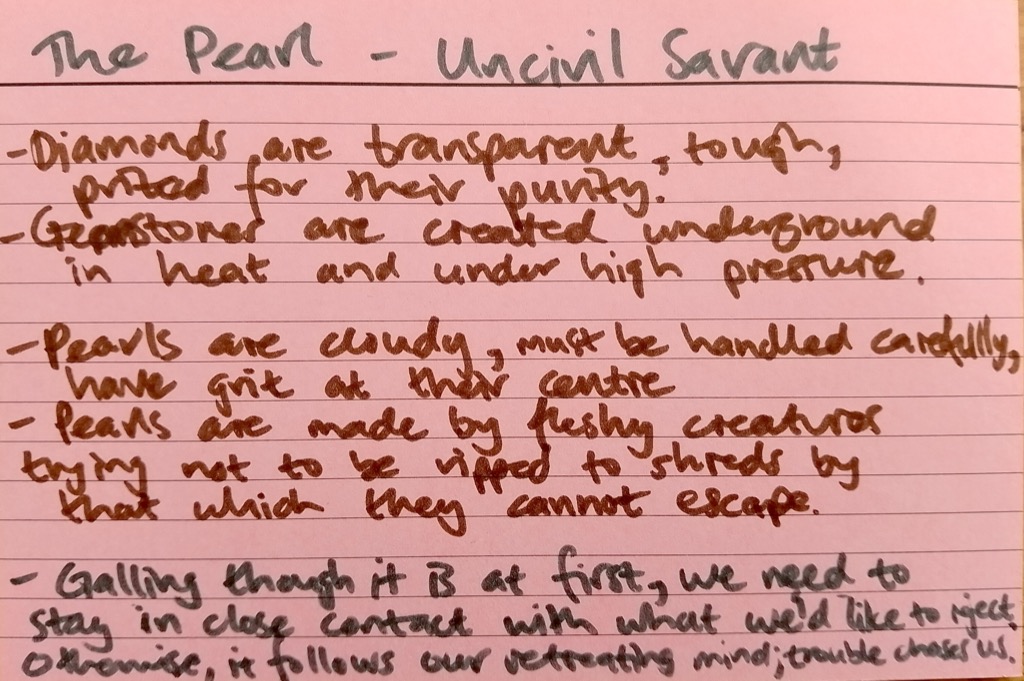 The Pearl - Uncivil Savant
- Diamonds are transparent, tough,
prized for their purity.
- Gemstones are created underground
in heat and under high pressure.
- Pearls are cloudy, must be handled carefully,
have grit at their centre
- Pearls are made by fleshy creatures
trying not to be ripped to shreds by
that which they cannot escape.
- Galling though it is at first, we need to
stay in close contact with what we'd like to reject.
Otherwise, it follows our retreating mind; trouble chases us.